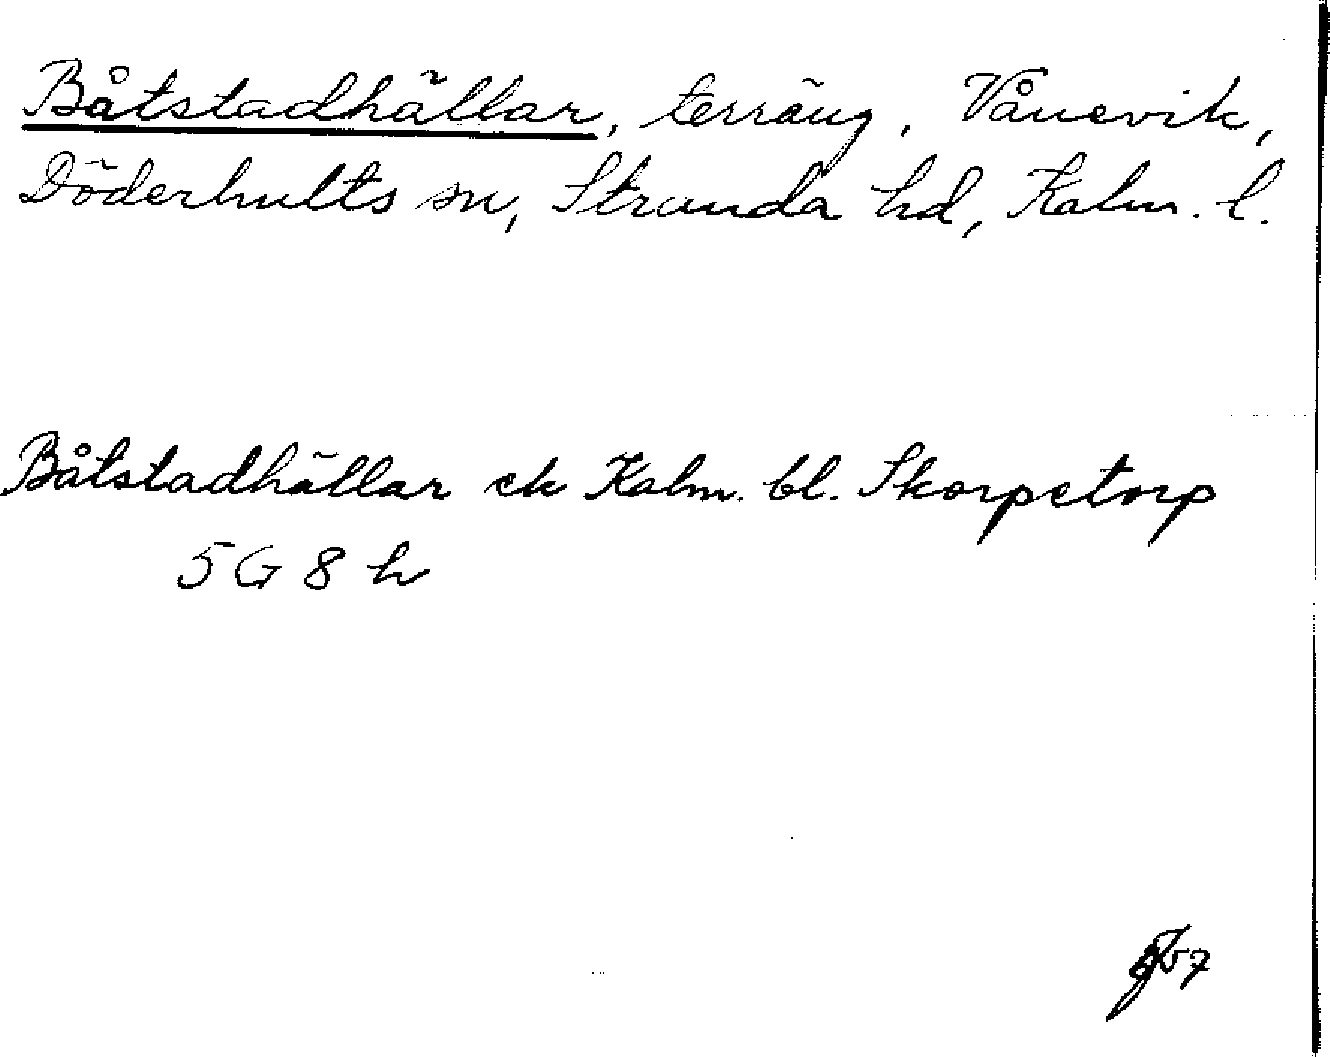 Båtstadhällar, terräng, Vånevik,
Döderhults sn, Stranda hd, Kalm. l.
Båtstadhällar ek Kalm. bl. Skorpetorp
5G8h